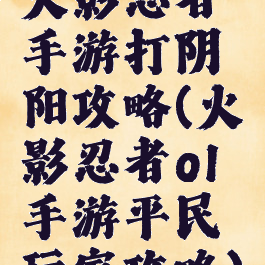 火影忍者
手游打阴
阳攻略(火
影忍者ol
手游平民
玩家攻略)